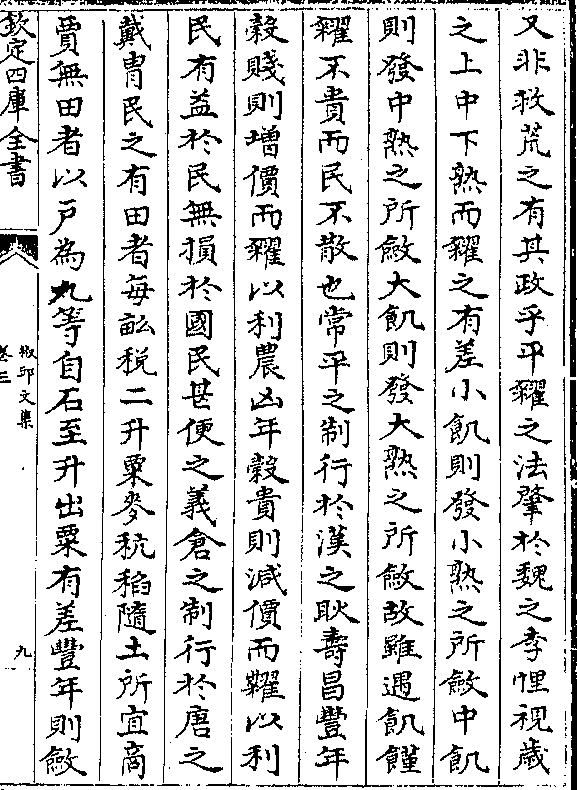 又非救荒之有其政乎平糴之法肇於魏之李悝視歲
之上中下熟而糴之有差小飢則發小熟之所斂中飢
則發中熟之所斂大飢則發大熟之所斂故雖遇飢饉
糴不貴而民不散也常平之制行於漢之耿壽昌豐年
穀賤則增價而糴以利農凶年穀貴則減價而糶以利
民有益於民無損於國民甚便之義倉之制行於唐之
戴胄民之有田者每畝税二升粟麥秔稻隨土所宜商
賈無田者以戸為九等自石至升出粟有差豐年則斂
欽定四庫全書
椒邱文集
卷三
九